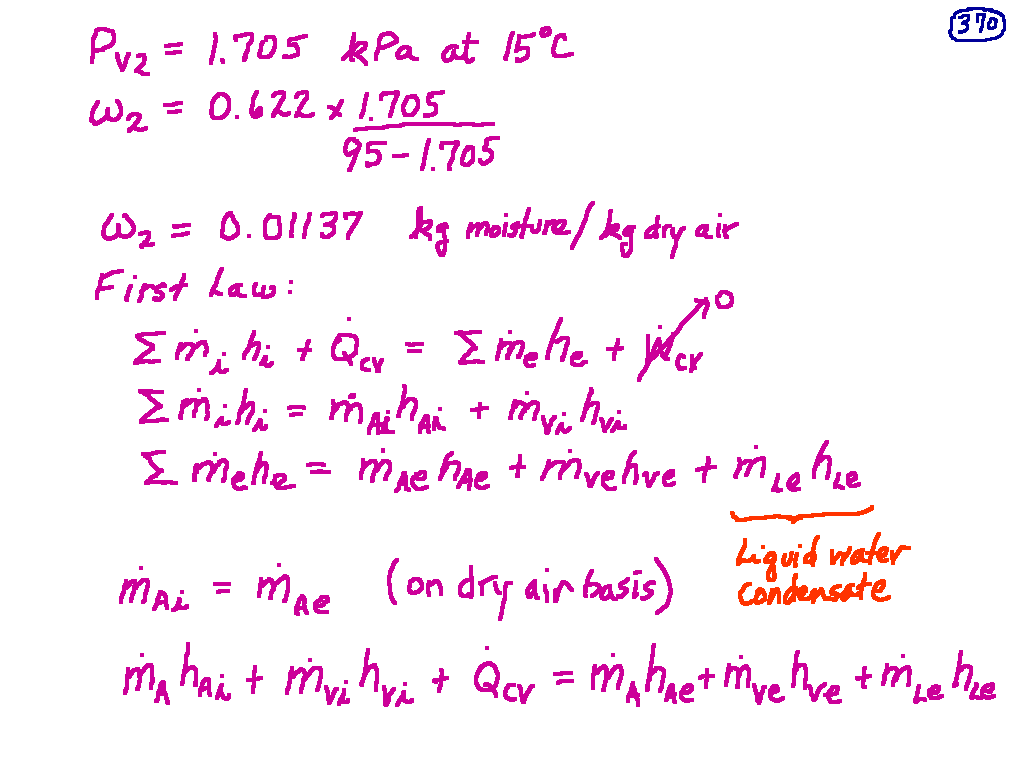 370
P_v2 = 1.705 kPa at 15°C
ω_2 = 0.622 × 1.705 / (95 - 1.705)
ω_2 = 0.01137 kg moisture/kg dry air
First Law:
Σ ṁ_i h_i + Q̇_cv = Σ ṁ_e h_e + Ẇ_cv → 0
Σ ṁ_i h_i = ṁ_Ai h_Ai + ṁ_vi h_vi
Σ ṁ_e h_e = ṁ_Ae h_Ae + ṁ_ve h_ve + ṁ_Le h_Le
Liquid water
Condensate
ṁ_Ai = ṁ_Ae (on dry air basis)
ṁ_A h_Ai + ṁ_vi h_vi + Q̇_cv = ṁ_A h_Ae + ṁ_ve h_ve + ṁ_Le h_Le